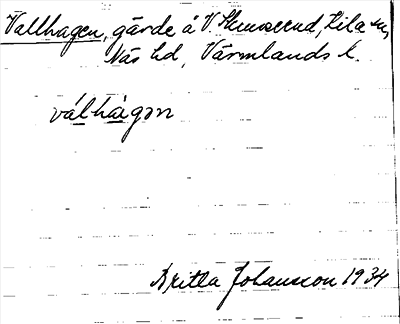 Vallhagen, gärde å V. Smoserud, Kila sn,
Näs hd, Värmlands l.
válhàgən
Britta Johansson 1934